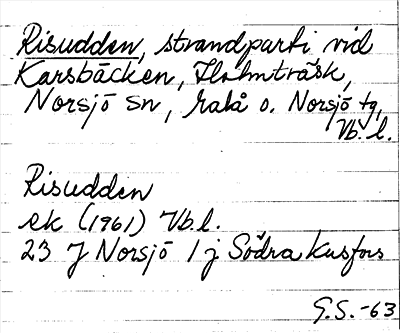 Risudden, strandparti vid
Karsbäcken, Holmträsk,
Norsjö sn, Malå o. Norsjö tg,
Vb. l.
Risudden
ek (1961) Vb.l.
23 J Norsjö 1 j Södra Kusfors
G.S.-63